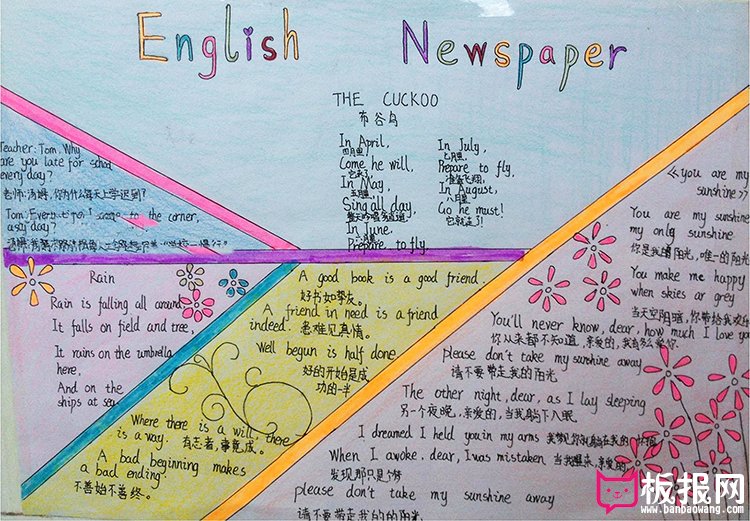 English Newspaper
THE CUCKOO
布谷鸟
In April,
四月里
Come he will,
它来了
In May,
五月里
Sing all day,
整天吟唱多逍遥
In June,
Prepare to fly,
In July,
七月里
Prepare to fly,
准备飞翔
In August,
八月里
Go he must!
它就走了!
Teacher: Tom, Why
are you late for school
every day?
老师:汤姆,你为什么每天上学迟到?
Tom: Every
the corner,
Rain
Rain is falling all around,
It falls on field and tree,
It rains on the umbrella
here,
And on the
ships at sea
A good book is a good friend.
好书如挚友。
A friend in need is a friend
indeed. 患难见真情。
Well begun is half done
好的开始是成
功的一半
Where there is a will, there
is a way. 有志者,事竟成。
A bad beginning makes
a bad ending.
不善始不善终。
<<you are my
sunshine>>
You are my sunshine
my only sunshine
你是我的阳光,唯一的阳光
You make me happy
when skies ar grey
当天空阴暗,你带给我欢乐
You'll never know, dear, how much I love you
你从来都不知道,亲爱的,我有多么爱你.
please don't take my sunshine away
请不要带走我的阳光
The other night, dear, as I lay sleeping
另一个夜晚,亲爱的,当我躺下入眠
I dreamed I held you in my arms
When I awoke, dear, I was mistaken 当我醒来,亲爱的,
发现那只是个梦
please don't take my sunshine away
请不要带走我的的阳光
板报网
www.banbaowang.com